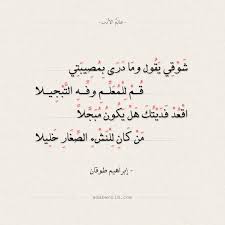 - عَالَمُ الأَدَب -
شَوْقِي يَقُول وَمَا دَرَى بِمُصِيبَتِي
قُـمْ لِلْمُعَلِّـمِ وَفِّـهِ التَّبْجِيـلا
اقْعُدْ فَدَيْتُكَ هَلْ يَكُونُ مُبَجَّلاً
مَنْ كَانَ لِلْنَشْءِ الصِّغَارِ خَلِيلا
- إبراهيم طوقان -
adabworld.com